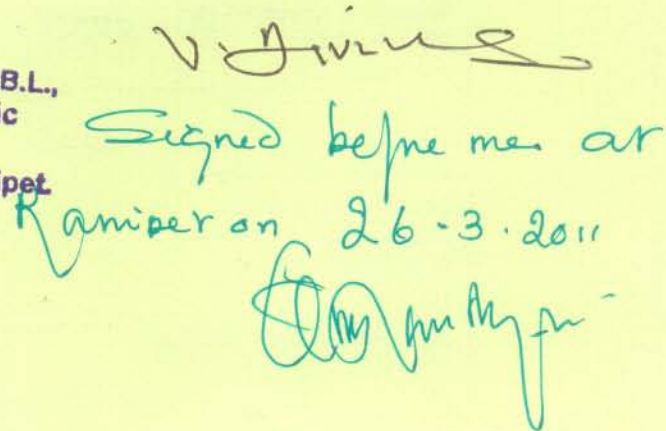 B.L.,
ic
Signed before me at
ipet
Ranipet on 26.3.2011